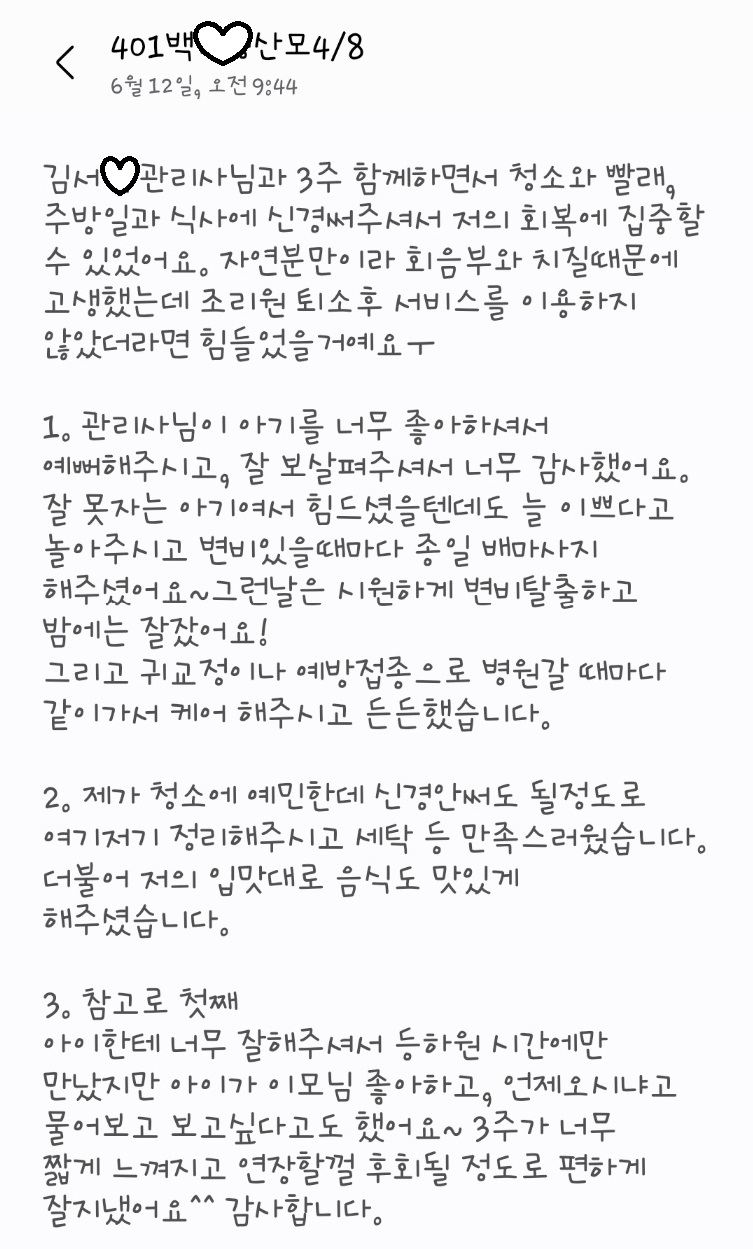 401백 산모4/8
6월 12일, 오전 9:44
김서 관리사님과 3주 함께하면서 청소와 빨래,
주방일과 식사에 신경써주셔서 저의 회복에 집중할
수 있었어요. 자연분만이라 회음부와 치질때문에
고생했는데 조리원 퇴소후 서비스를 이용하지
않았더라면 힘들었을거예요ㅜ
1. 관리사님이 아기를 너무 좋아하셔서
예뻐해주시고, 잘 보살펴주셔서 너무 감사했어요.
잘 못자는 아기여서 힘드셨을텐데도 늘 이쁘다고
놀아주시고 변비있을때마다 종일 배마사지
해주셨어요~그런날은 시원하게 변비탈출하고
밤에는 잘잤어요!
그리고 귀교정이나 예방접종으로 병원갈 때마다
같이가서 케어 해주시고 든든했습니다.
2. 제가 청소에 예민한데 신경안써도 될정도로
여기저기 정리해주시고 세탁 등 만족스러웠습니다.
더불어 저의 입맛대로 음식도 맛있게
해주셨습니다.
3. 참고로 첫째
아이한테 너무 잘해주셔서 등하원 시간에만
만났지만 아이가 이모님 좋아하고, 언제오시냐고
물어보고 보고싶다고도 했어요~ 3주가 너무
짧게 느껴지고 연장할껄 후회될 정도로 편하게
잘지냈어요^^ 감사합니다.